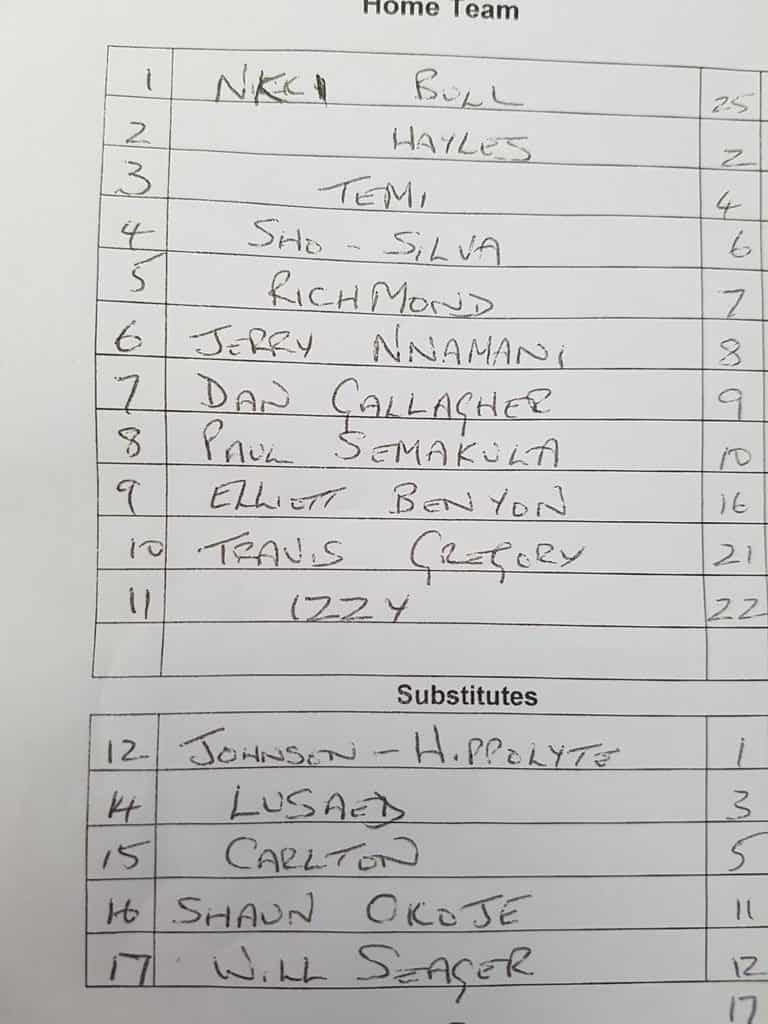 Home Team
1 NIKKI BULL 25
2 HAYLES 2
3 TEMI 4
4 SHO - SILVA 6
5 RICHMOND 7
6 JERRY NNAMANI 8
7 DAN GALLAGHER 9
8 PAUL SEMAKULA 10
9 ELLIOTT BENYON 16
10 TRAVIS GREGORY 21
11 IZZY 22
Substitutes
12 JOHNSON - HIPPOLYTE 1
14 LUSAED 3
15 CARLTON 5
16 SHAUN OKOJE 11
17 WILL SEAGER 12
17